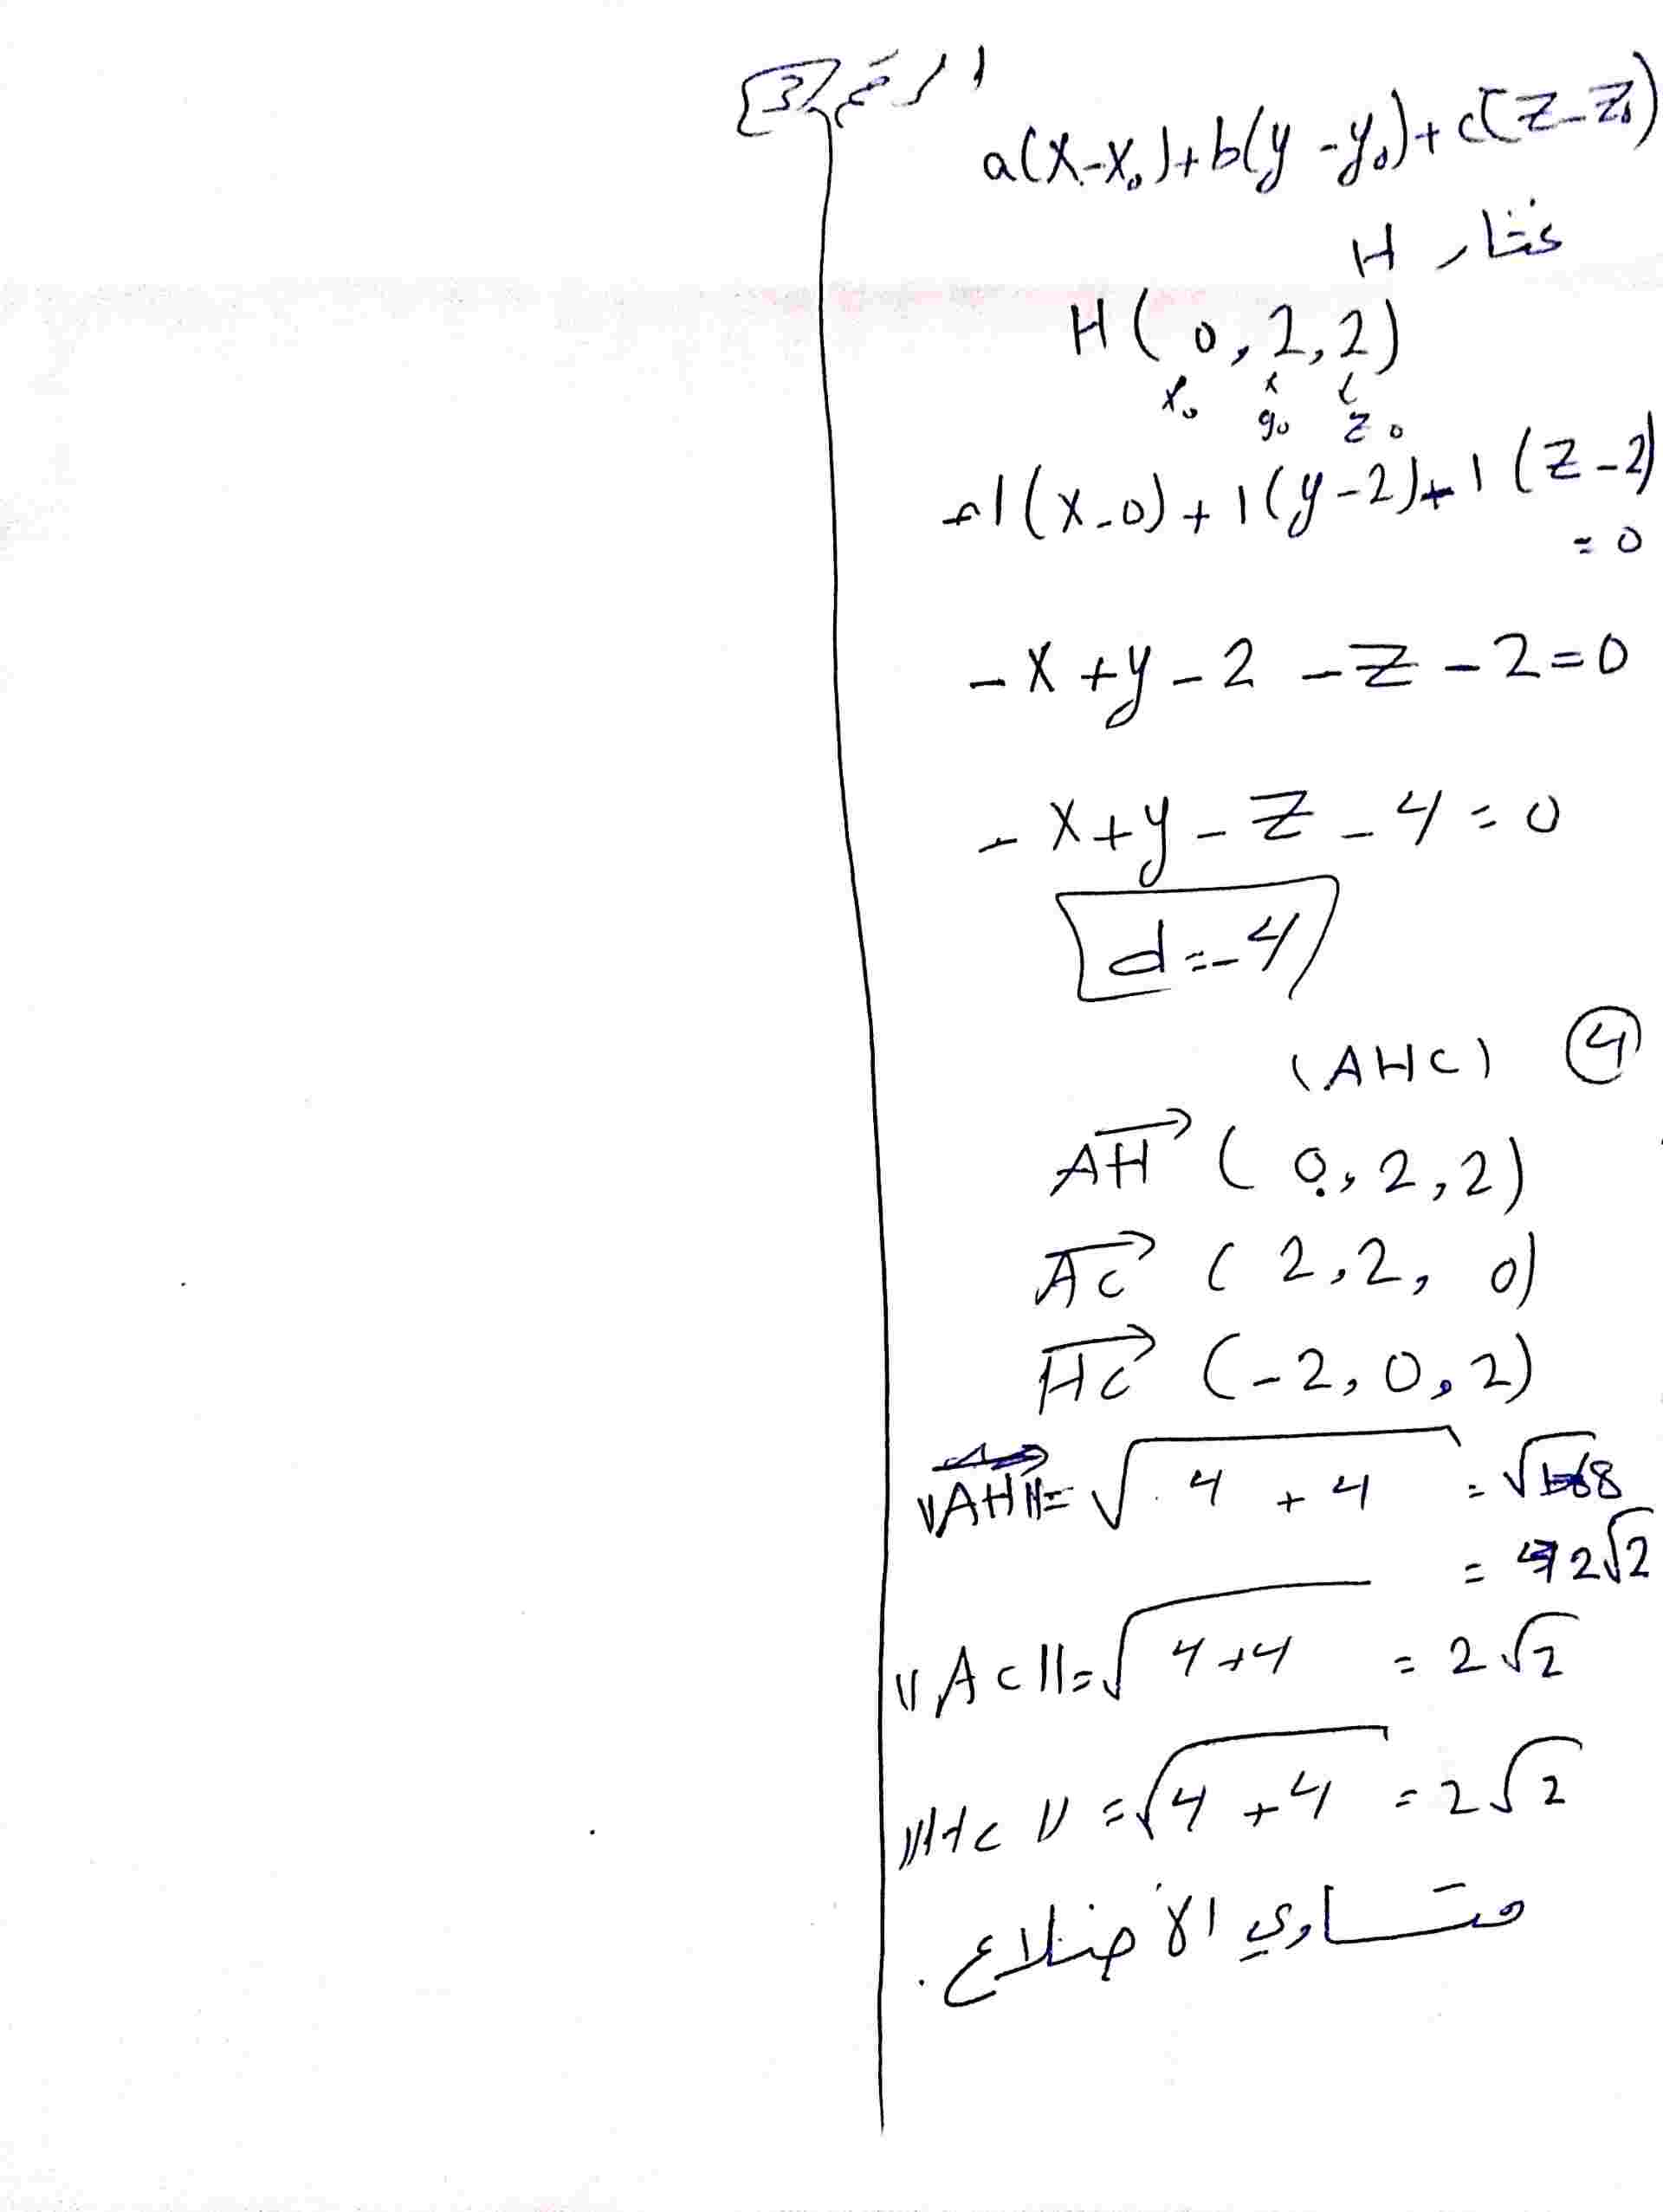 a(x-x₀)+b(y-y₀)+c(z-z₀)
نختار H
H(0,2,2)
x₀ y₀ z₀
-1(x-0)+1(y-2)+1(z-2)
=0
-x+y-2-z-2=0
-x+y-z-4=0
d=-4
④ (AHC)
AH (0,2,2)
AC (2,2,0)
HC (-2,0,2)
||AH||=√4+4 =√8
=2√2
||AC||=√4+4 =2√2
||HC||=√4+4 =2√2
متساوي الأضلاع.